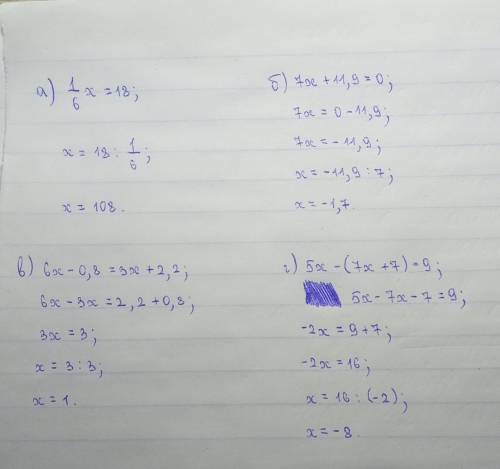 а) 1/6 x = 18;
x = 18 : 1/6;
x = 108.
б) 7x + 11,9 = 0;
7x = 0 - 11,9;
7x = -11,9;
x = -11,9 : 7;
x = -1,7.
в) 6x - 0,8 = 3x + 2,2;
6x - 3x = 2,2 + 0,8;
3x = 3;
x = 3 : 3;
x = 1.
г) 5x - (7x + 7) = 9;
5x - 7x - 7 = 9;
-2x = 9 + 7;
-2x = 16;
x = 16 : (-2);
x = -8.